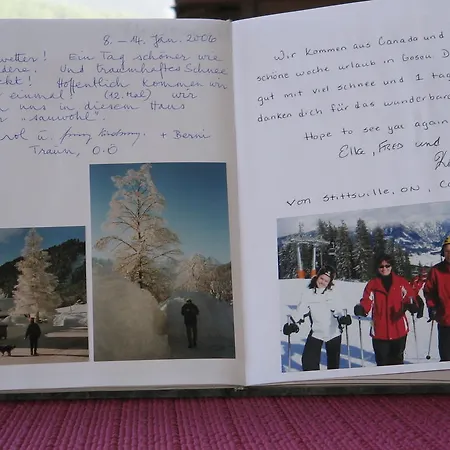 8. – 14. Jän. 2006
wetter! Ein Tag schöner wie
dere. Und traumhaftes Schnee
ckt! Hoffentlich kommen wir
einmal! (12. Mal) wir
en uns in diesem Haus
"sauwohl".
rol u. + Berni
Traun, O.Ö
Wir kommen aus Canada und
schöne woche urlaub in Gosau D
gut mit viel schnee und 1 tag
danken dich für das wunderbare
Hope to see you again
Elke, Fred und
von Stittsville, ON, Ca